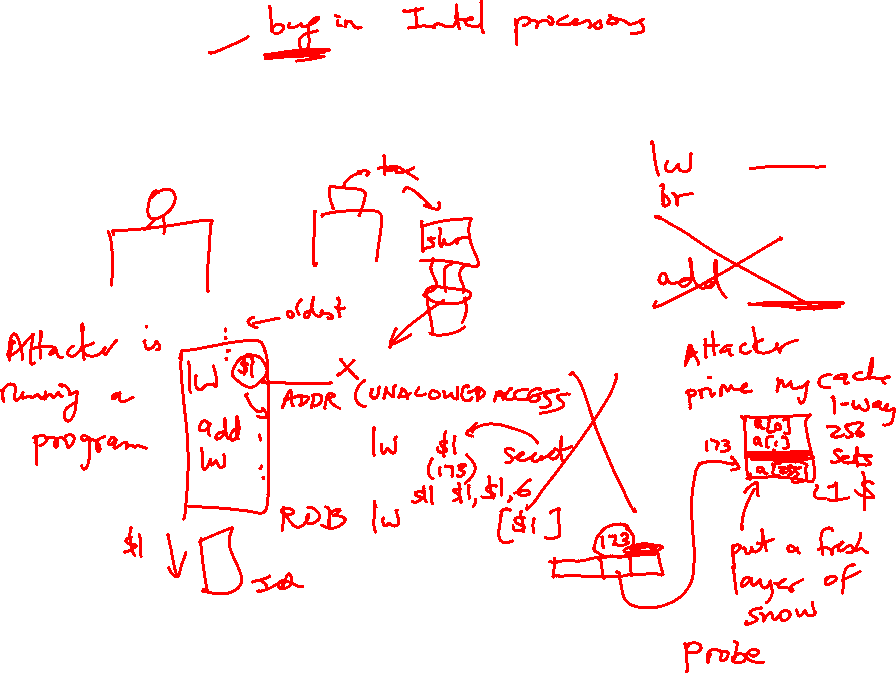 bug in Intel processors
tax
shr
lw
br
add
oldest
Attacker is
running a
program
lw $1
add
lw
X
ADDR (UNALLOWED ACCESS
lw $1
(173)
secret
sll $1, $1, 6
ROB lw [$1]
$1
173
Attacker
prime my cache
1-way
256
sets
L1 $
a[0]
a[1]
a[255]
173
put a fresh
layer of
snow
Probe